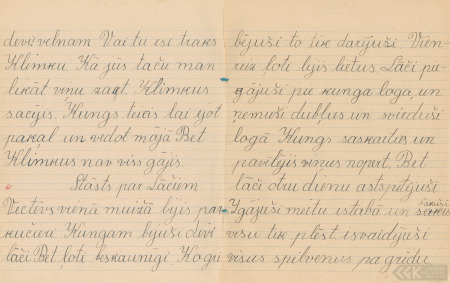 devis velnam Vai tu esi traks
Klimku. Kā jūs taču man
likāt viņu zagt. Klimkus
sacījis. Kungs teicis lai ejot
pakaļ un vedot mājā Bet
Klimkus nav vis gājis.
Stāsts par Lāčiem
Vectēvs vienā muižā bijis par
kučieri Kungam bijuši divi
lāči. Bet ļoti beskaunīgi Ko gri
bējuši to tik darījuši. Vien
reiz ļoti lijis lietus Lāči pie
gājuši pie kunga loga un
ņēmuši dubļus un svieduši
logā Kungs saskaities un
pavēlējis viņus nopērt. Bet
lāči otru dienu atspītējuši
Iegājuši meitu istabā un sākuši
visu tik plēst. isvaidījuši
visus spilvenus pa grīdu